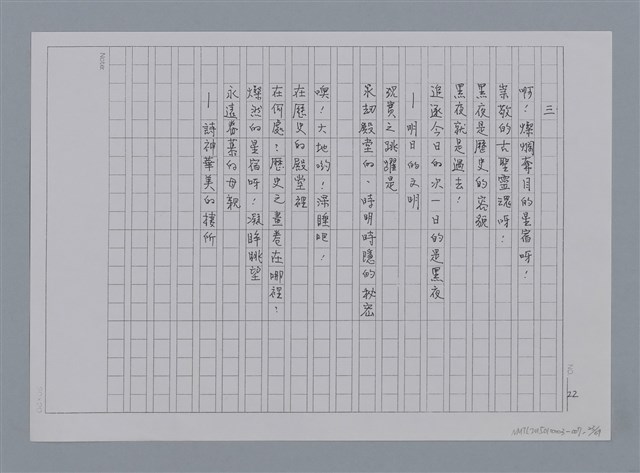 三
啊！燦爛奪目的星宿呀！
崇敬的大聖靈魂呀！
黑夜是歷史的容貌
黑夜就是過去！
追逐今日的次一日的是黑夜
—明日的文明
現實之跳躍是
永劫殿堂的、時明時隱的秘密
噢！大地喲！深睡吧！
在歷史的殿堂裡
在何處？歷史之畫卷在哪裡？
燦然的星宿呀！凝眸眺望
永遠眷慕的母親
—詩神華美的棲所
Note
22